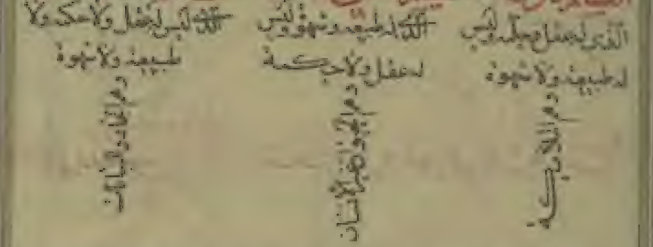 الذي له عقل وحكمة وليس
له طبيعة ولا شهوة
وهم الملائكة
الذي له طبيعة وشهوة وليس
له عقل ولا حكمة
وهم الحيوان غير الإنسان
الذي ليس له عقل ولا حكمة ولا
طبيعة ولا شهوة
وهم الجماد والنبات